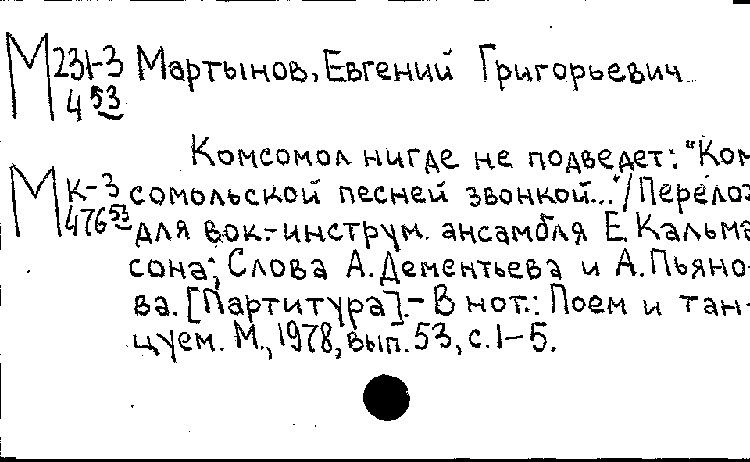 М 231-3 Мартынов, Евгений Григорьевич
4 53
Комсомол нигде не подведет: "Ком
М К-3 сомольской песней звонкой..." / Перелож
476 53 для вок.-инструм. ансамбля Е. Кальма
сона; Слова А. Дементьева и А. Пьяно-
ва. [Партитура]. - В нот.: Поем и тан-
цуем. М., 1978, вып. 53, с. 1-5.